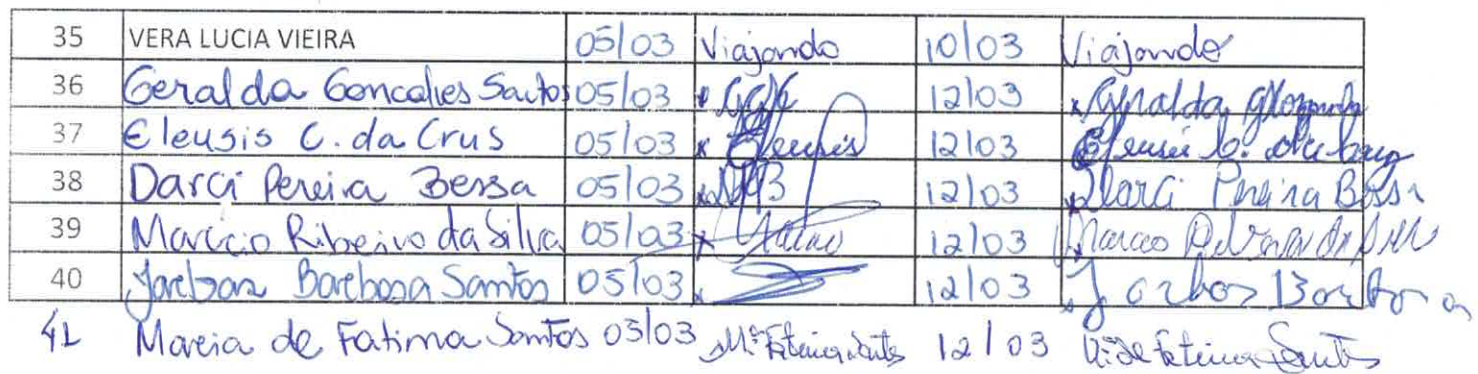 35 VERA LUCIA VIEIRA 05/03 Viajando 10/03 Viajando
36 Geralda Goncalves Santos 05/03 x GGS 12/03 x Geralda
37 Eleusis C. da Crus 05/03 x Eleusis 12/03 Eleusis C. da
38 Darci Pereira Bessa 05/03 x DPB 12/03 x Darci Pereira Bessa
39 Marccio Ribeiro da Silva 05/03 x 12/03 Marcio
40 Jarbas Barbosa Santos 05/03 x 12/03 x Jarbas Barbosa
41 Maria de Fatima Santos 05/03 Mª Fatima Santos 12/03 Mª de Fatima Santos